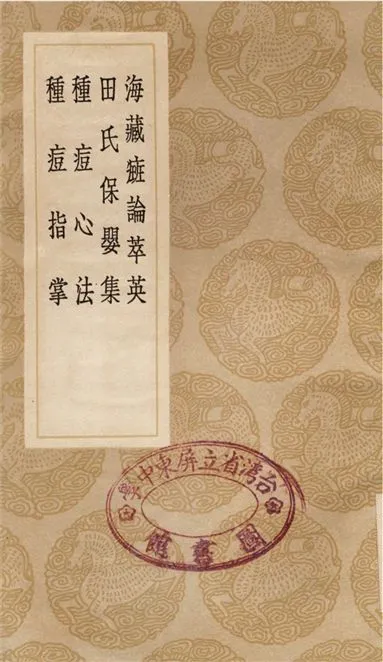 海藏癍論萃英
田氏保嬰集
種痘心法
種痘指掌
台灣省立屏東中學
圖書館